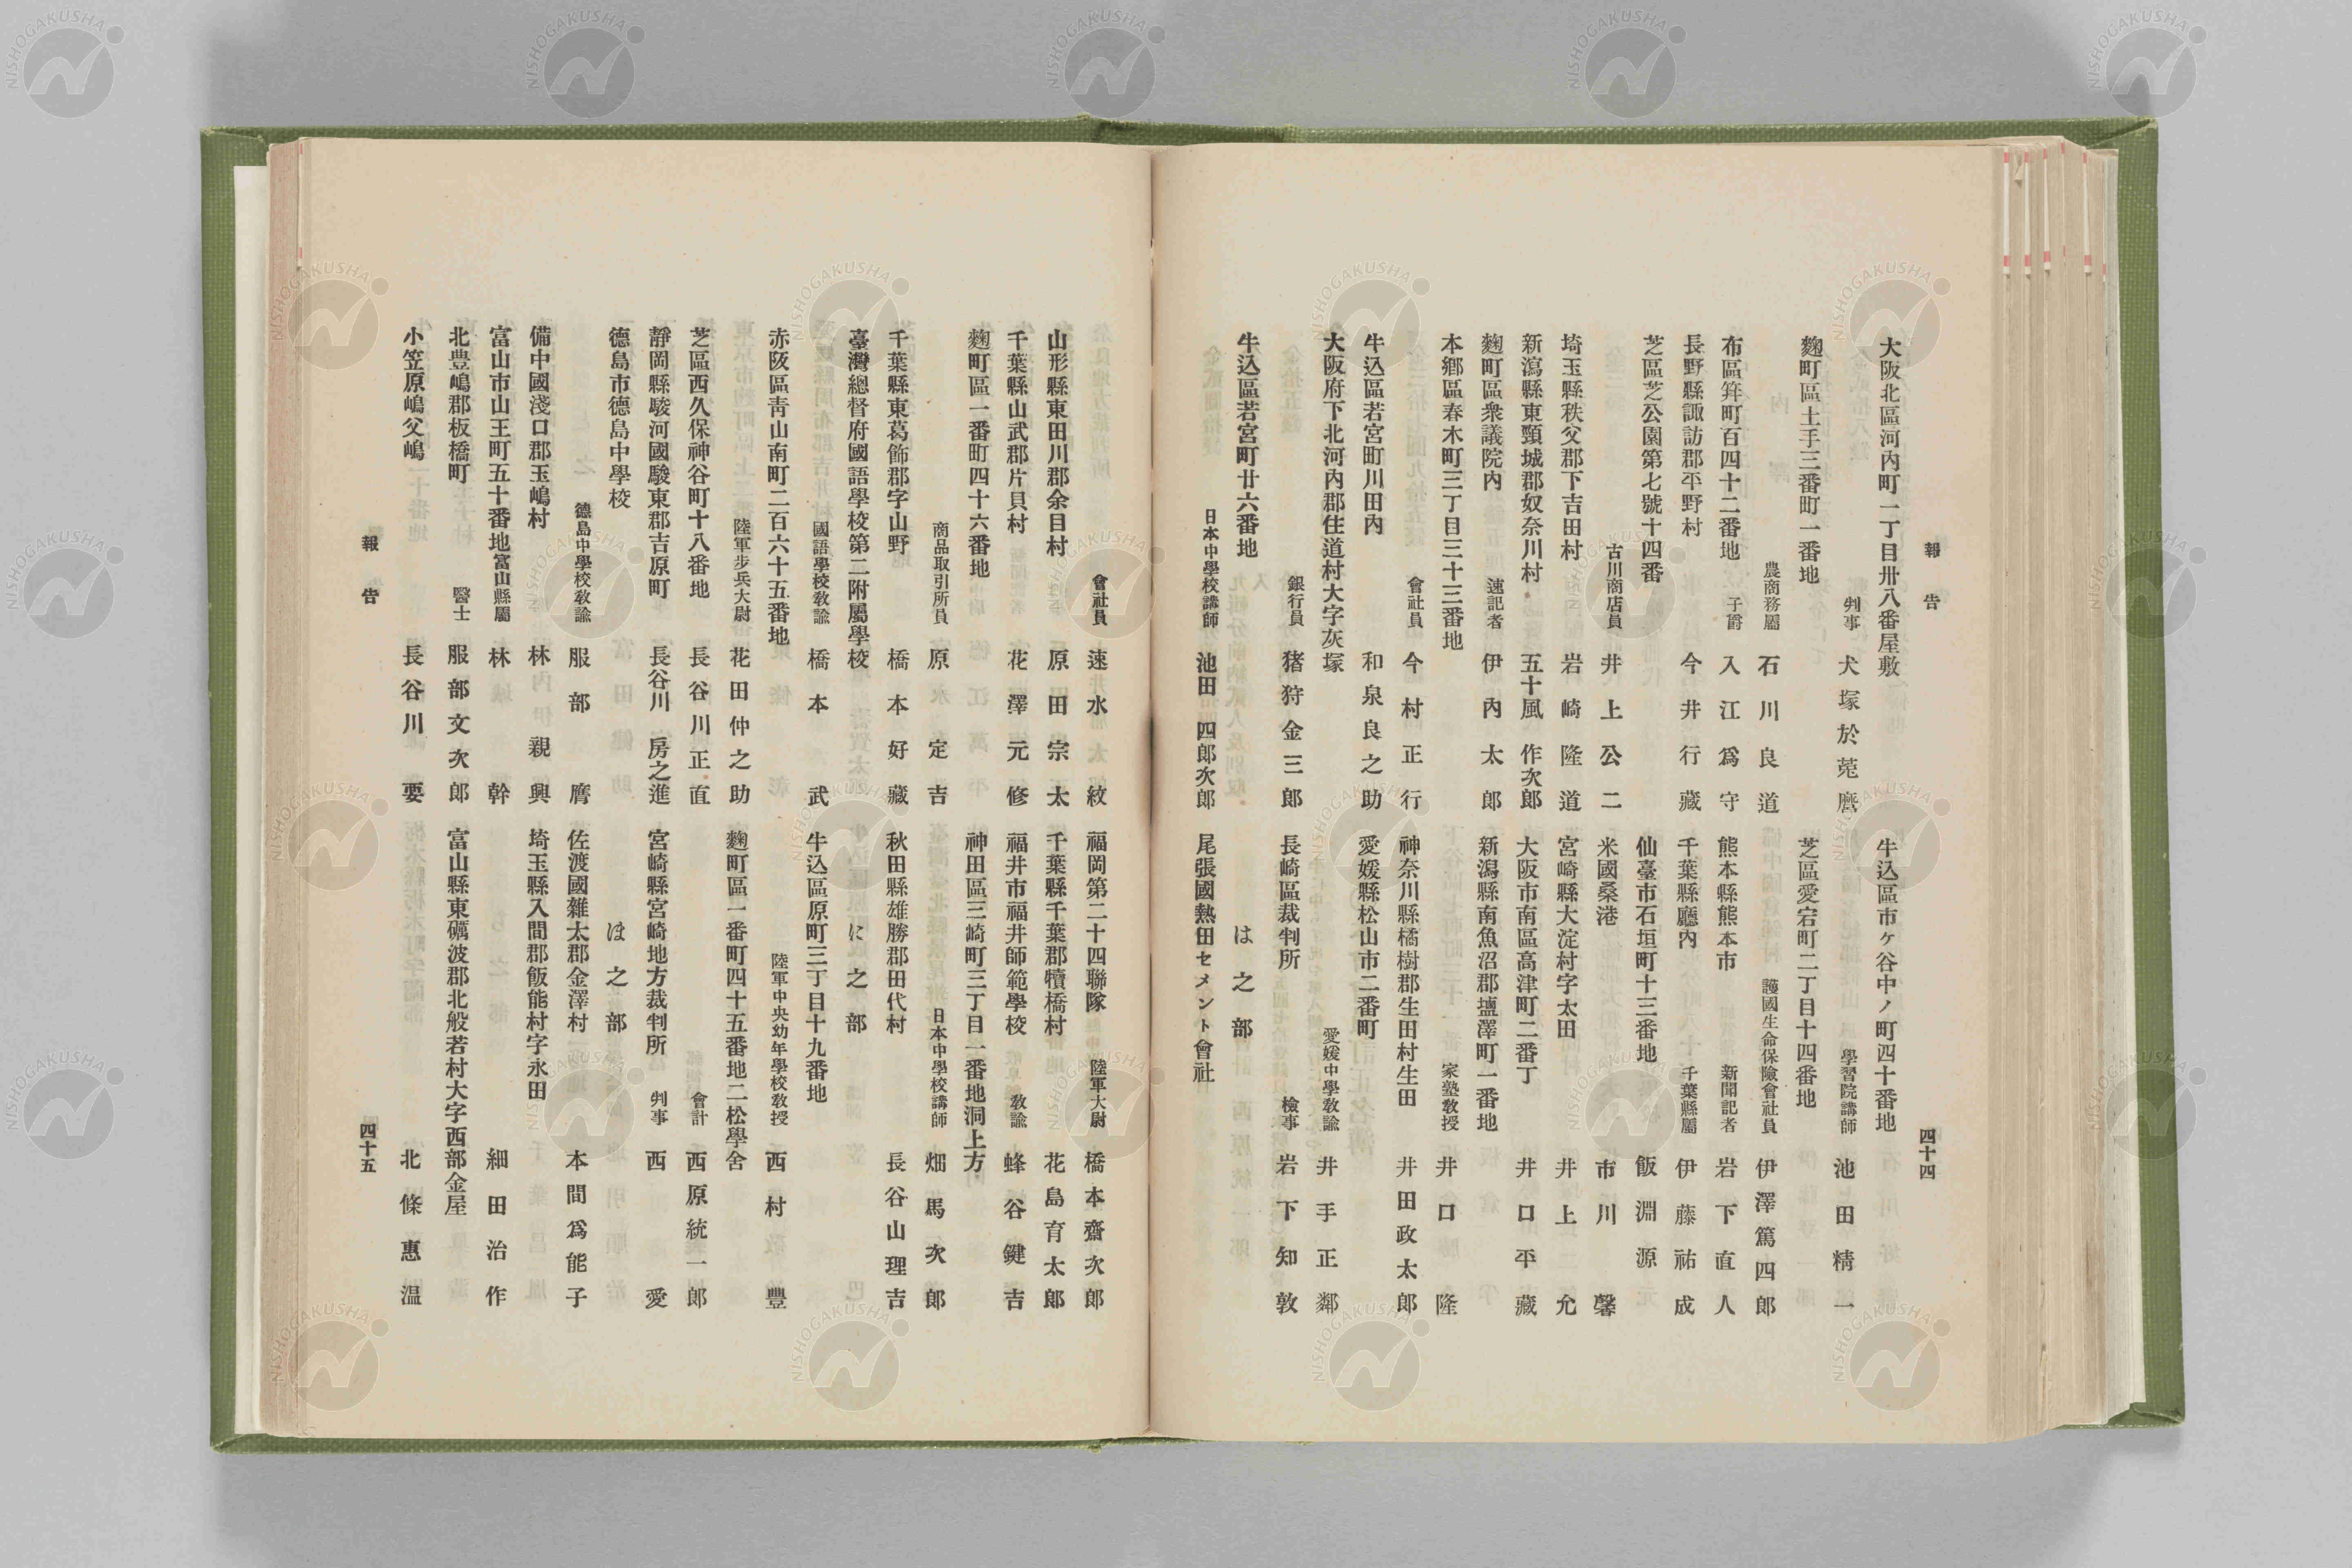 報告
四十四
大阪北區河內町一丁目卅八番屋敷
判事 犬塚於菟麿
麴町區土手三番町一番地
農商務屬 石川良道
布區笄町百四十二番地 子爵 入江爲守
長野縣諏訪郡平野村 今井行藏
芝區芝公園第七號十四番
古川商店員 井上公二
埼玉縣秩父郡下吉田村 岩崎隆道
新潟縣東頸城郡奴奈川村 五十風作次郎
麴町區衆議院內 速記者 伊內太郎
本鄉區春木町三丁目三十三番地
會社員 今村正行
牛込區若宮町川田內 和泉良之助
大阪府下北河內郡住道村大字灰塚
銀行員 猪狩金三郎
牛込區若宮町廿六番地
日本中學校講師 池田四郎次郎
牛込區市ケ谷中ノ町四十番地
學習院講師 池田精一
芝區愛宕町二丁目十四番地
護國生命保險會社員 伊澤篤四郎
熊本縣熊本市 新聞記者 岩下直人
千葉縣廳內 千葉縣屬 伊藤祐成
仙臺市石垣町十三番地 飯淵源
米國桑港 市川馨
宮崎縣大淀村字太田 井上允
大阪市南區高津町二番丁 井口平藏
新潟縣南魚沼郡鹽澤町一番地
家塾敎授 井口隆
神奈川縣橘樹郡生田村生田 井田政太郎
愛媛縣松山市二番町
愛媛中學敎諭 井手正鄰
長崎區裁判所 檢事 岩下知敦
は之部
尾張國熱田セメント會社
會社員 速水紋
山形縣東田川郡余目村 原田宗太
千葉縣山武郡片貝村 花澤元修
麴町區一番町四十六番地
商品取引所員 原定吉
千葉縣東葛飾郡字山野 橋本好藏
臺灣總督府國語學校第二附屬學校
國語學校敎諭 橋本武
赤阪區靑山南町二百六十五番地
陸軍步兵大尉 花田仲之助
芝區西久保神谷町十八番地 長谷川正直
靜岡縣駿河國駿東郡吉原町 長谷川房之進
德島市德島中學校
德島中學校敎諭 服部膺
備中國淺口郡玉嶋村 林親興
富山市山王町五十番地 富山縣屬 林幹
北豊嶋郡板橋町 醫士 服部文次郎
小笠原嶋父嶋 長谷川要
福岡第二十四聯隊 陸軍大尉 橋本齋次郎
千葉縣千葉郡犢橋村 花島育太郎
福井市福井師範學校 敎諭 蜂谷鍵吉
神田區三崎町三丁目一番地洞上方
日本中學校講師 畑馬次郎
秋田縣雄勝郡田代村 長谷山理吉
に之部
牛込區原町三丁目十九番地
陸軍中央幼年學校敎授 西村豐
麴町區一番町四十五番地二松學舍
會計 西原統一郎
宮崎縣宮崎地方裁判所 判事 西愛
ほ之部
佐渡國雜太郡金澤村 本間爲能子
埼玉縣入間郡飯能村字永田
細田治作
富山縣東礪波郡北般若村大字西部金屋
北條惠温
報告
四十五